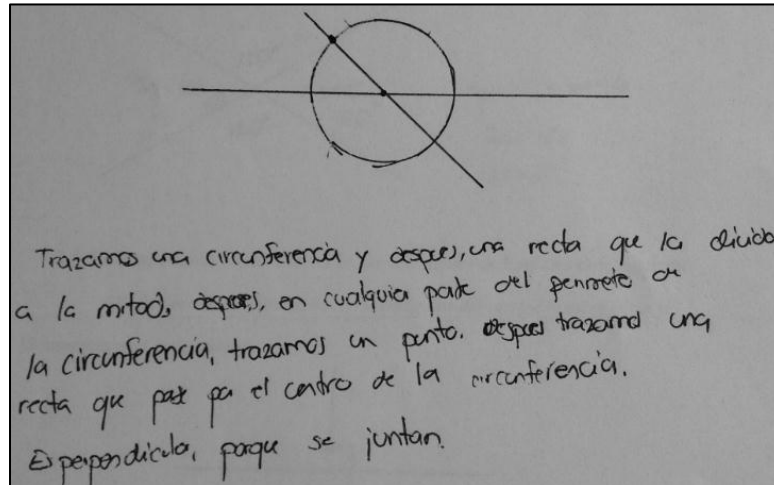 Trazamos una circunferencia y despues, una recta que la divida
a la mitad, despues, en cualquia parte del perimetro de
la circunferencia, trazamos un punto. despues trazamos una
recta que pase pa el centro de la circunferencia.
Es perpendicula, porque se juntan.